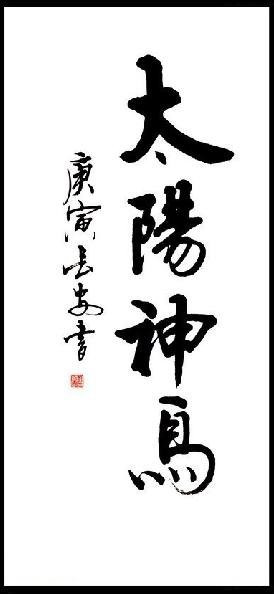 太陽神鳥
庚寅安書